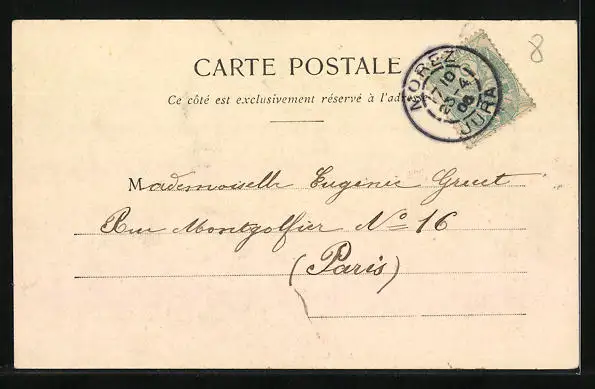 8
CARTE POSTALE
Ce côté est exclusivement réservé à l'adresse
MOREZ
17 10
23 -4
06
JURA
Mademoiselle Eugénie Gruet
Rue Montgolfier No 16
(Paris)